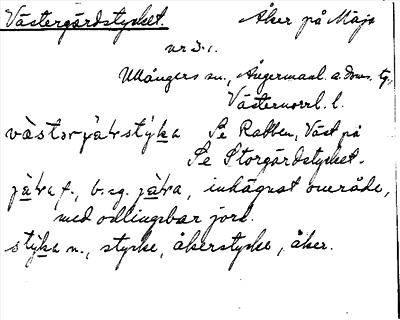 Västergårdstycket. Åker på Mäja
nr 3:1.
Ullångers sn., Ångermanl. s. doms. tg,
Västernorrl. l.
västərjàrstýka Se Rabben, Väst på
Se Storgårdstycket.
jàra f., b. sg. jàra, inhägnat område,
med odlingsbar jord.
stýka n., stycke, åkerstycke, åker.